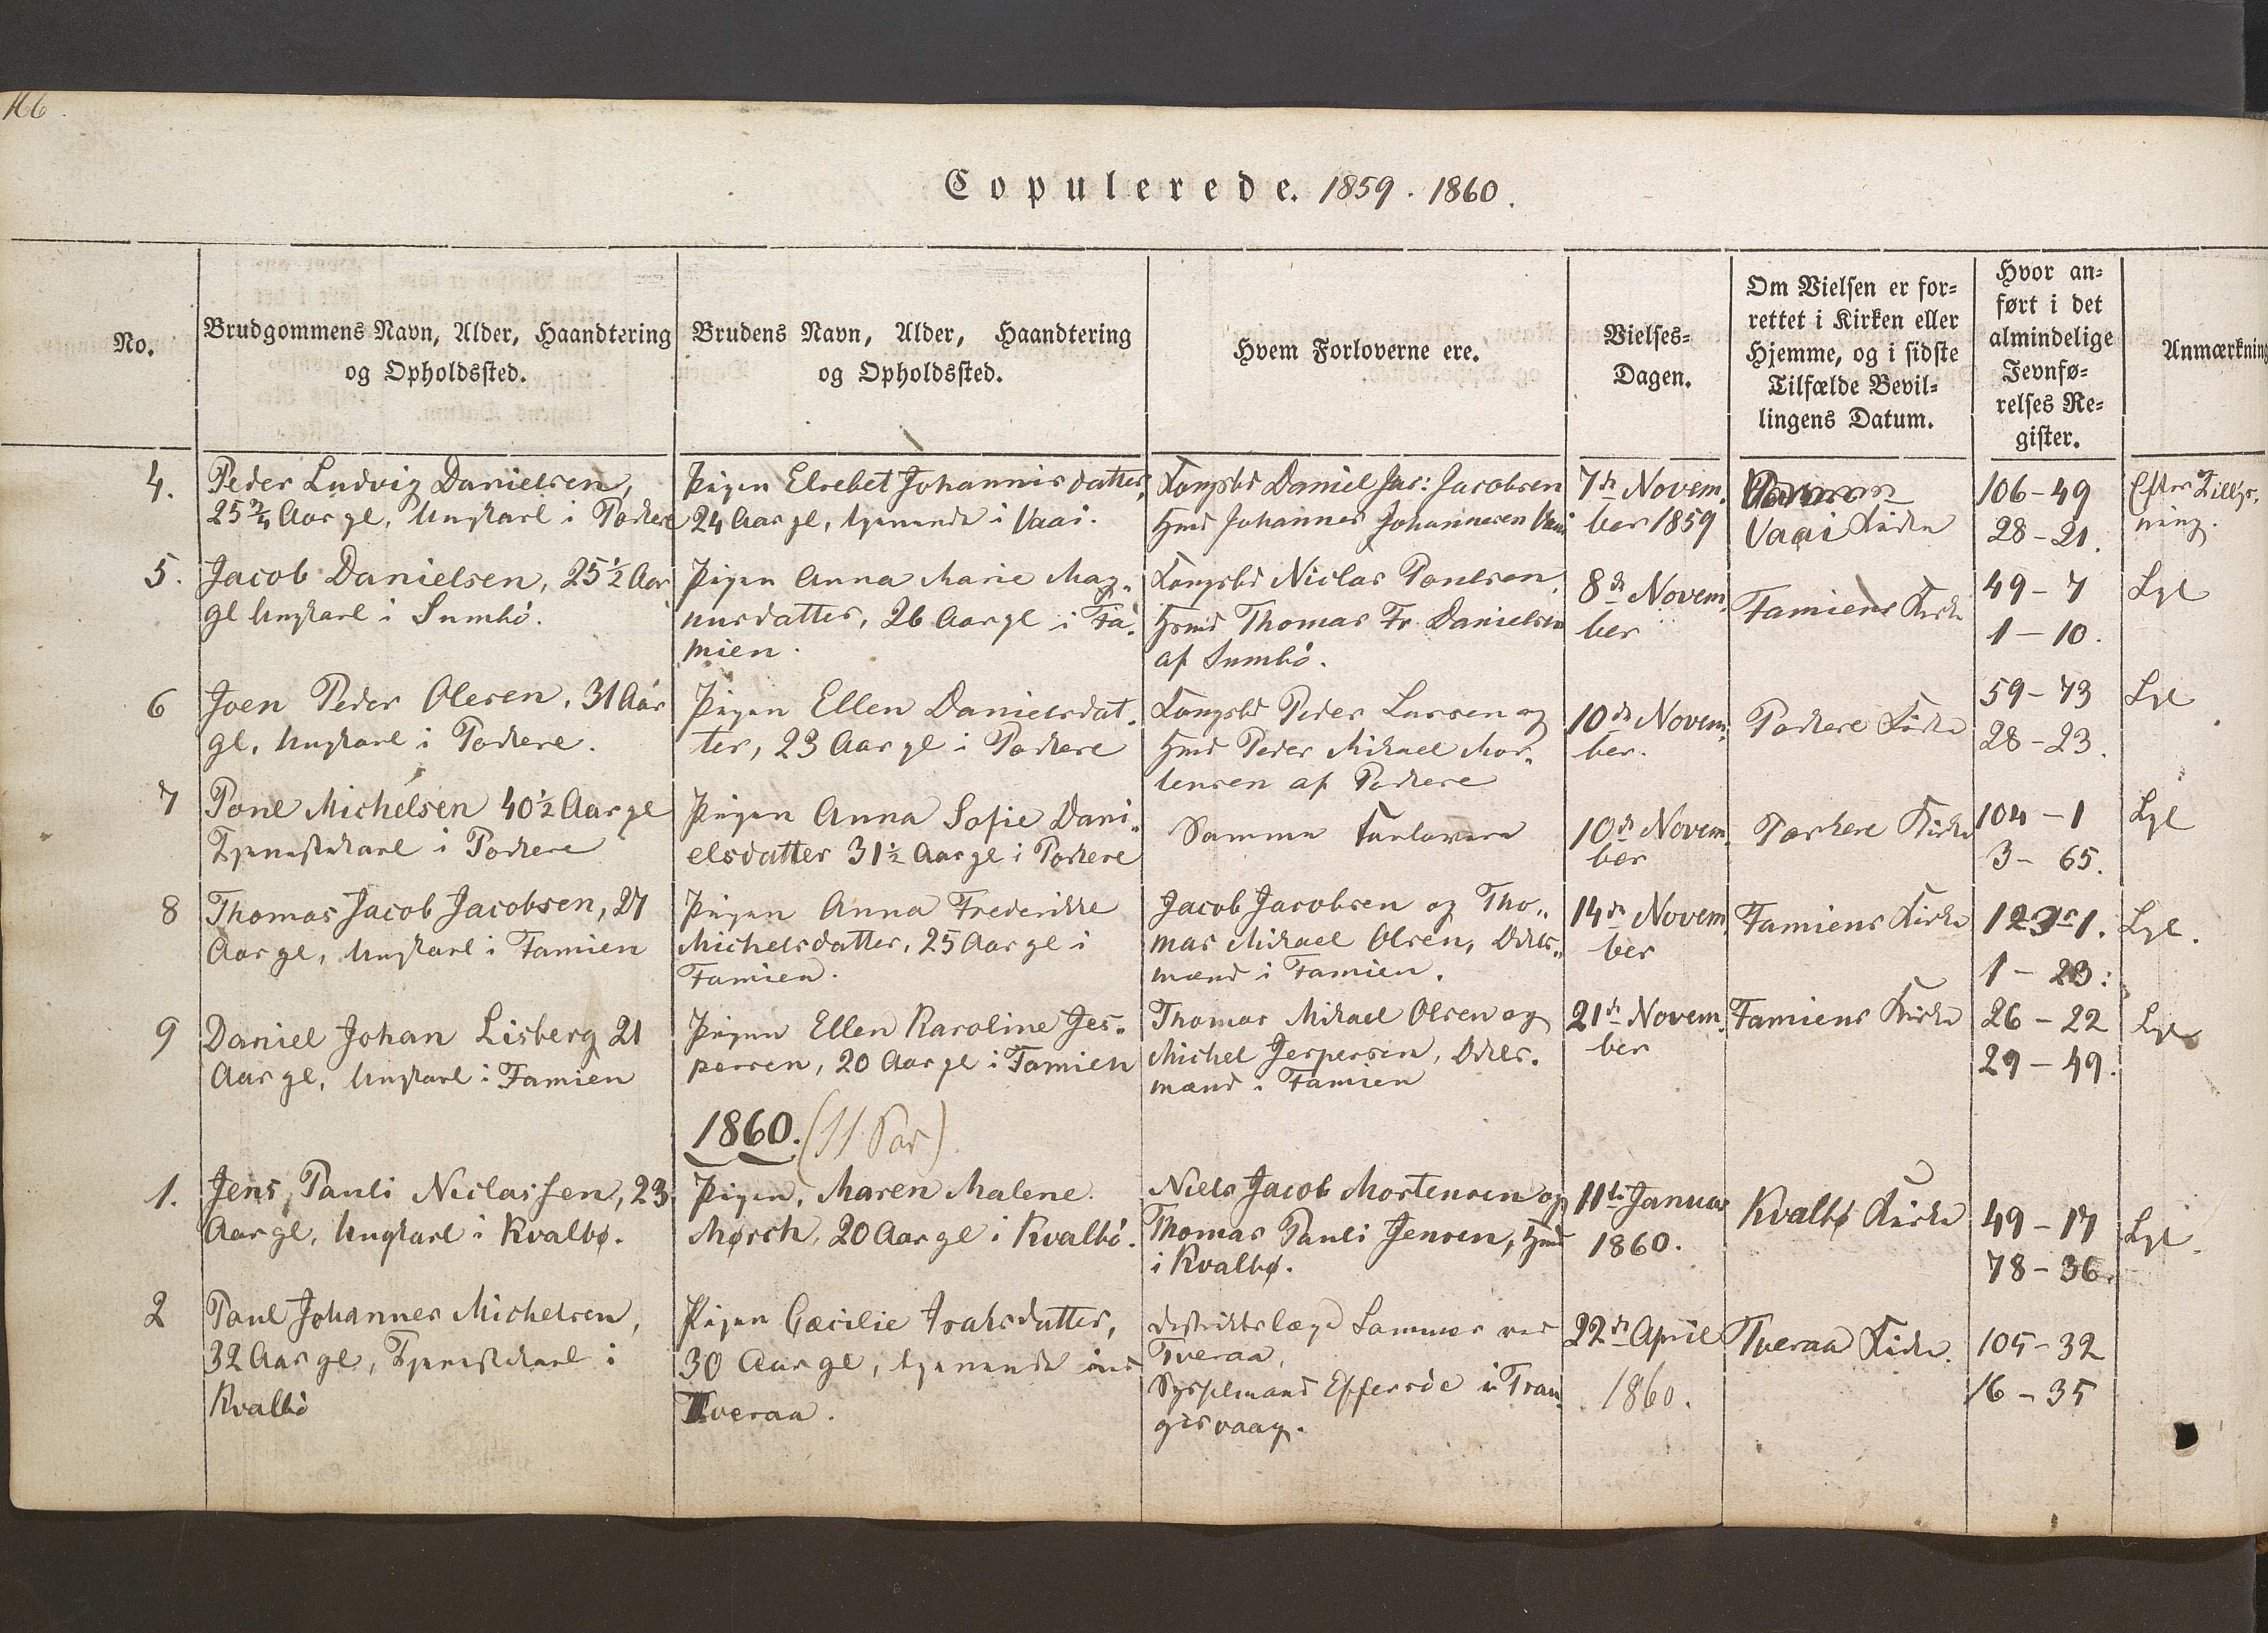 166.
Copulerede. 1859. 1860.
No.
Brudgommens Navn, Alder, Haandtering
og Opholdssted.
Brudens Navn, Alder, Haandtering
og Opholdssted.
Hvem Forloverne ere.
Vielses-
Dagen.
Om Vielsen er for-
rettet i Kirken eller
Hjemme, og i sidste
Tilfælde Bevil-
lingens Datum.
Hvor an-
ført i det
almindelige
Jevnfø-
relses Re-
gister.
Anmærkning
4.
Peder Ludvig Danielsen,
25 3/4 Aar gl, Ungkarl i Porkere
Pigen Elsebet Johannisdatter,
24 Aar gl, tjenende i Vaai.
Kongsbd Daniel Jac: Jacobsen
Hmd Johannes Johannesen Vaai
7de Novem-
ber 1859
Vaai Kirke
106-49
28-21.
Efter Tillys-
ning.
5.
Jacob Danielsen, 25 1/2 Aar
gl Ungkarl i Sumbø.
Pigen Anna Marie Mag-
nusdatter, 26 Aar gl i Fa-
mien.
Kongsbd Niclas Poulsen,
Hmd Thomas Fr. Danielsen
af Sumbø.
8de Novem-
ber
Famiens Kirke
49-7
1-10.
Lgl
6
Joen Peder Olesen, 31 Aar
gl, Ungkarl i Porkere.
Pigen Ellen Danielsdat-
ter, 23 Aar gl i Porkere
Kongsbd Peder Larsen og
Hmd Peder Mikael Mor-
tensen af Porkere
10de Novem-
ber.
Porkere Kirke
59-73
28-23.
Lgl
7
Poul Michelsen 40 1/2 Aar gl
Tjenestekarl i Porkere
Pigen Anna Sofie Dani-
elsdatter 31 1/2 Aar gl i Porkere
Samme Forlovere
10de Novem-
ber
Porkere Kirke
104-1
3-65.
Lgl
8
Thomas Jacob Jacobsen, 27
Aar gl, Ungkarl i Famien
Pigen Anna Frederikke
Michelsdatter, 25 Aar gl i
Famien.
Jacob Jacobsen og Tho-
mas Mikael Olsen, Odels-
mænd i Famien.
14de Novem-
ber
Famiens Kirke
1-23:
Lgl.
9
Daniel Johan Lisberg 21
Aar gl, Ungkarl i Famien
Pigen Ellen Karoline Jes-
persen, 20 Aar gl i Famien
Thomas Mikael Olsen og
Michel Jespersen, Odels-
mænd i Famien
21de Novem-
ber
Famiens Kirke
26-22
29-49.
Lgl
1860. (11 Par)
1.
Jens Pauli Niclassen, 23
Aar gl, Ungkarl i Kvalbø.
Pigen, Maren Malene
Mørch, 20 Aar gl i Kvalbø.
Niels Jacob Mortensen og
Thomas Pauli Jensen, Hmd
i Kvalbø.
11te Januar
1860.
Kvalbø Kirke
49-17
78-36.
Lgl.
2
Paul Johannes Michelsen,
32 Aar gl, Tjenestekarl i
Kvalbø
Pigen Cæcilie Isaksdatter,
30 Aar gl, tjenende ved
Tveraa.
Distriktslæge Sommer ved
Tveraa,
Sysselmand Effersøe i Tran-
gisvaag.
22de April
1860.
Tveraa Kirke.
105-32
16-35